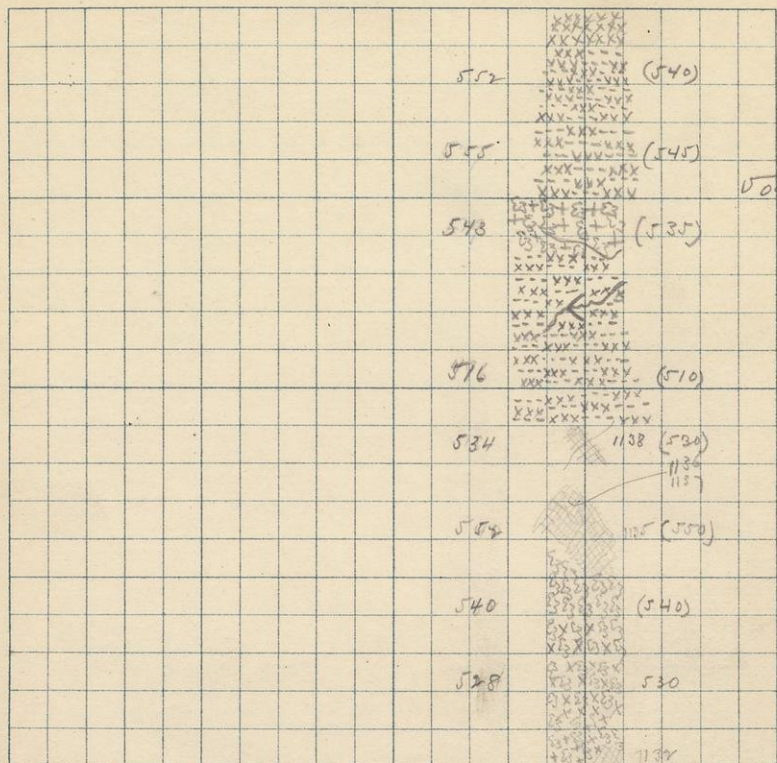 552 (540)
555 (545)
50
543 (535)
516 (510)
534 1138 (530)
1136
1137
1135 (550)
540 (540)
528 530
1132